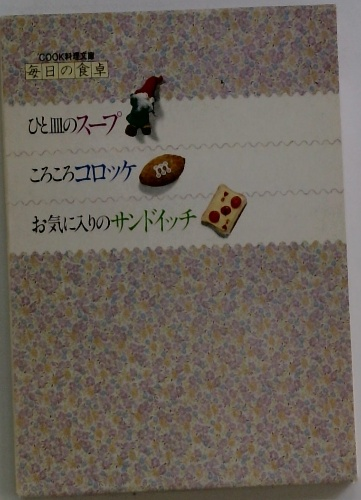 COOK料理文庫
毎日の食卓
ひと皿のスープ
ころころコロッケ
お気に入りのサンドイッチ